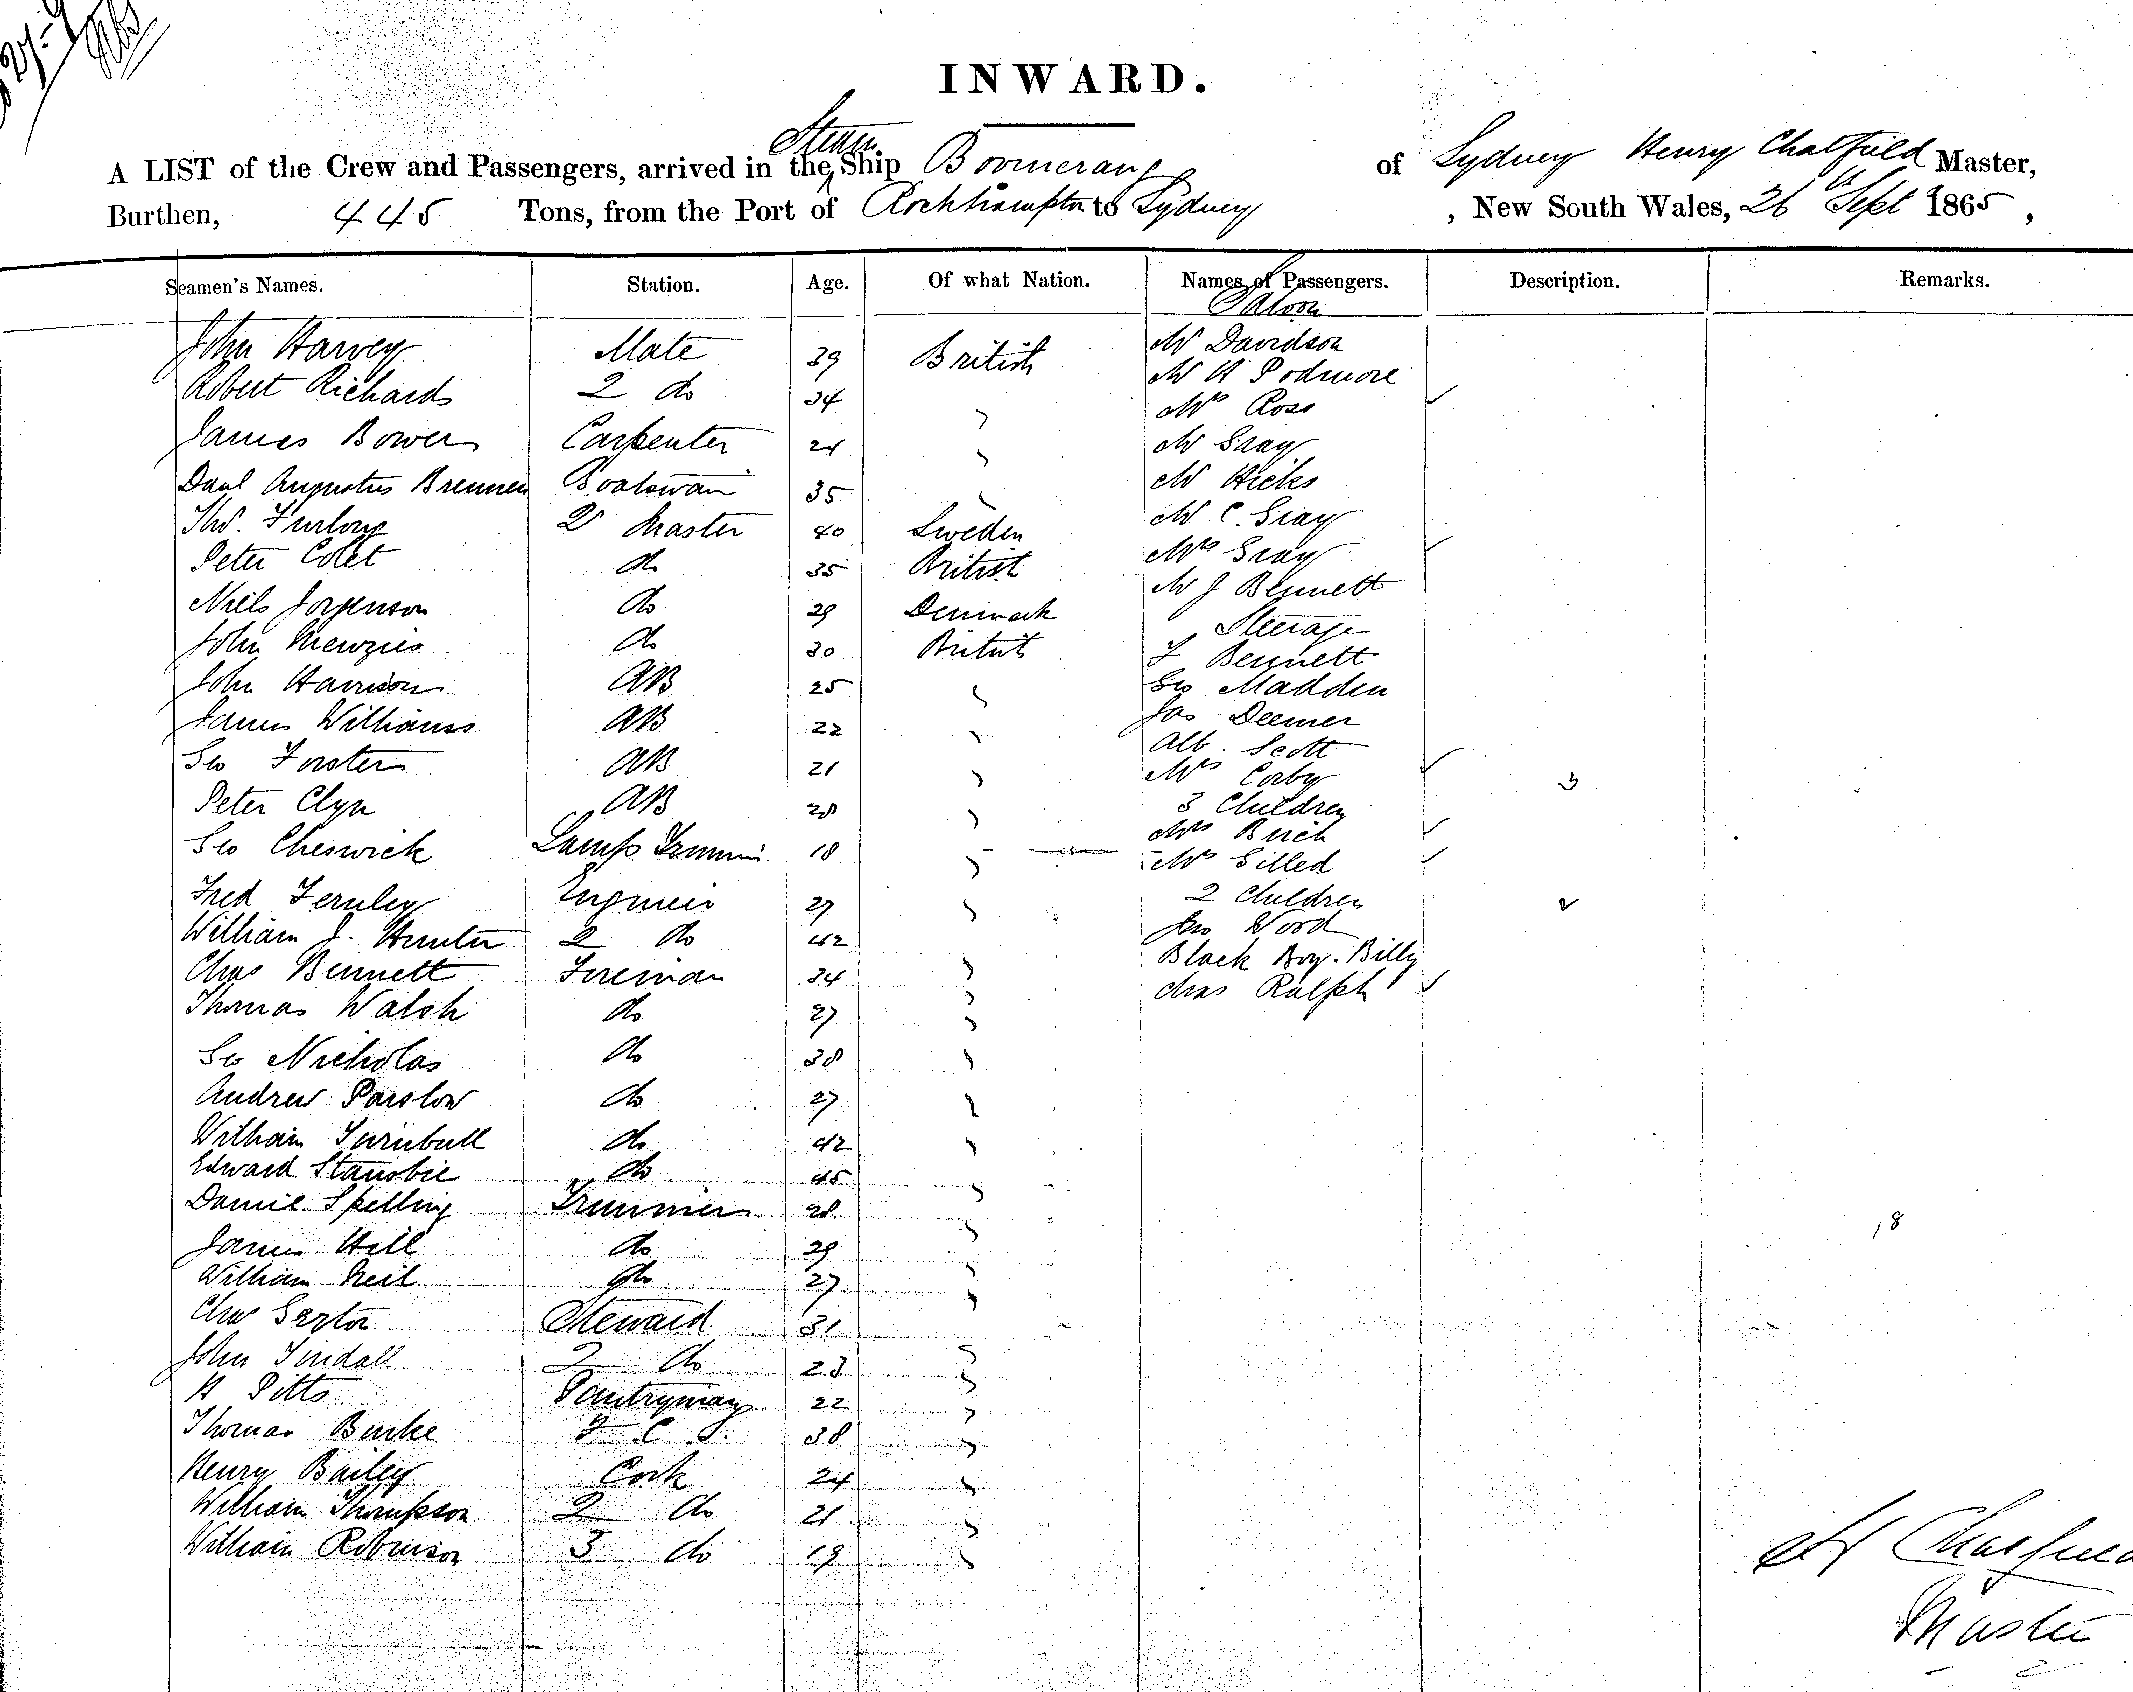 INWARD.
A LIST of the Crew and Passengers, arrived in the Steam Ship Boomerang of Sydney Henry Chatfield Master,
Burthen, 445 Tons, from the Port of Rockhampton to Sydney, New South Wales, 26th Sept 1865,
Seamen's Names. Station. Age. Of what Nation. Names of Passengers. Description. Remarks.
Saloon
John Harvey Mate 39 British Mr Davidson
Robert Richards 2 do 34 Mr H Podmore
Mrs Ross
James Bower Carpenter 28 Mr Gray
Paul Augustus Brennen Boatswain 35 Mr Hicks
Thos. Furlong 2r Master 40 Sweden Mr C. Gray
Peter Colet do 35 British Mrs Gray
Niels Jorgenson do 29 Denmark Mr J Bennett
Steerage
John Menzies do 30 British F Bennett
John Harrison AB 25 Geo Madden
James Williams AB 22 Jas Deemer
Alb. Scott
Geo Forster AB 21 Mrs Corby 3
Peter Clyn AB 28 3 Children
Mrs Birch
Geo Cheswick Lamp Trimmer 18 Mrs Gilled
Fred Fernley Engineer 27 2 Children 2
William J. Hunter 2 do 42 Jas Wood
Chas Bennett Fireman 34 Black Boy. Billy
Thomas Walsh do 27 Chas Ralph
Geo Nicholas do 38
Andrew Parslow do 27
William Turnbull do 42
Edward Stansbie do 45
Daniel Spelling Trimmer 28
James Hill do 29 18
William Neil do 27
Chas Sexton Steward 31
John Tindall 2 do 23
H Pitts Pantryman 22
Thomas Burke F. C. S. 38
Henry Bailey Cook 24
William Thompson 2 do 21
William Robinson 3 do 19
H Chatfield
Master